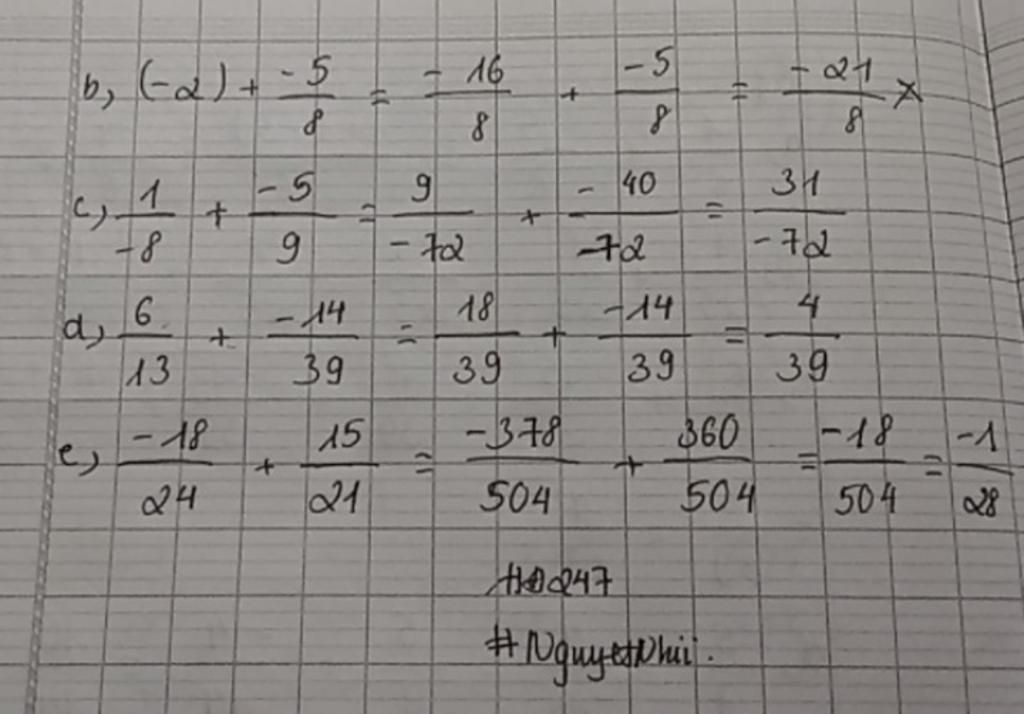 b, (-2) + -5/8 = -16/8 + -5/8 = -21/8 x
c, 1/-8 + -5/9 = 9/-72 + -40/-72 = 31/-72
d, 6/13 + -14/39 = 18/39 + -14/39 = 4/39
e, -18/24 + 15/21 = -378/504 + 360/504 = -18/504 = -1/28
#Nguyệt Nhii.